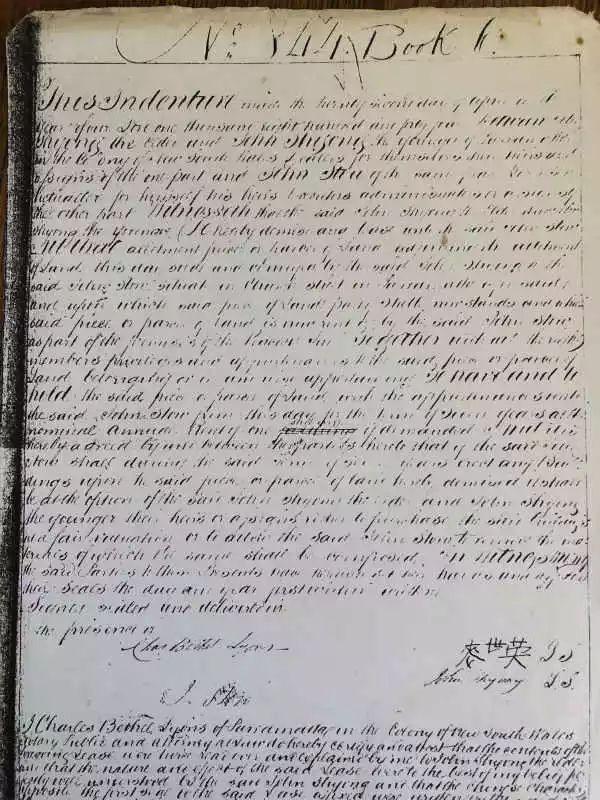 No. 844. Book 6.
This Indenture made the twenty second day of April in the
Year of our Lord one thousand eight hundred and fifty four Between John
Shying the elder and John Shying the younger of Parramatta
in the Colony of New South Wales Dealers for themselves their heirs and
assigns of the one part and John Stow of the same place
for himself his heirs Executors administrators or assigns of
the other part Witnesseth that the said John Shying the elder and John
Shying the younger hereby demise and lease unto the said John Stow
All that allotment piece or parcel of Land adjoining the allotment
of Land this day sold and conveyed by the said John Shying to the
said John Stow situate in Church street in Parramatta aforesaid
and upon which said piece of Land part stable now stands and which
said piece or parcel of land is now rented by the said John Stow
as part of the premises of the Together with all the rights
members privileges and appurtenances to the said piece or parcel of
Land belonging or in any wise appertaining To have and to
hold the said piece or parcel of Land with the appurtenances unto
the said John Stow from this day for the term of seven years at the
nominal annual Rent of one shilling if demanded And it is
hereby agreed by and between the parties hereto that if the said John
Stow shall during the said term of seven years erect any buil
dings upon the said piece or parcel of land hereby demised it shall
be at the option of the said John Shying the elder and John Shying
the younger their heirs or assigns either to purchase the said buildings
at a fair valuation or to allow the said John Stow to remove the ma
terials of which the same shall be composed. In witness whereof
the said Parties to these Presents have hereunto set their hands and affixed
their seals the day and year first within written
Signed sealed and delivered in
the presence of
Chas Bethel Lyons
麥世英 L S
John Shying L.S.
J. Stow
I Charles Bethel Lyons of Parramatta in the Colony of New South Wales
Notary Public and Attorney at Law do hereby certify and attest that the contents of the
foregoing Lease were read over and explained by me to John Shying the elder
and that the nature and effect of the said Lease were to the best of my belief per
fectly well understood by the said John Shying and that the Chinese Characters
opposite the first seal to the said Lease affixed were written